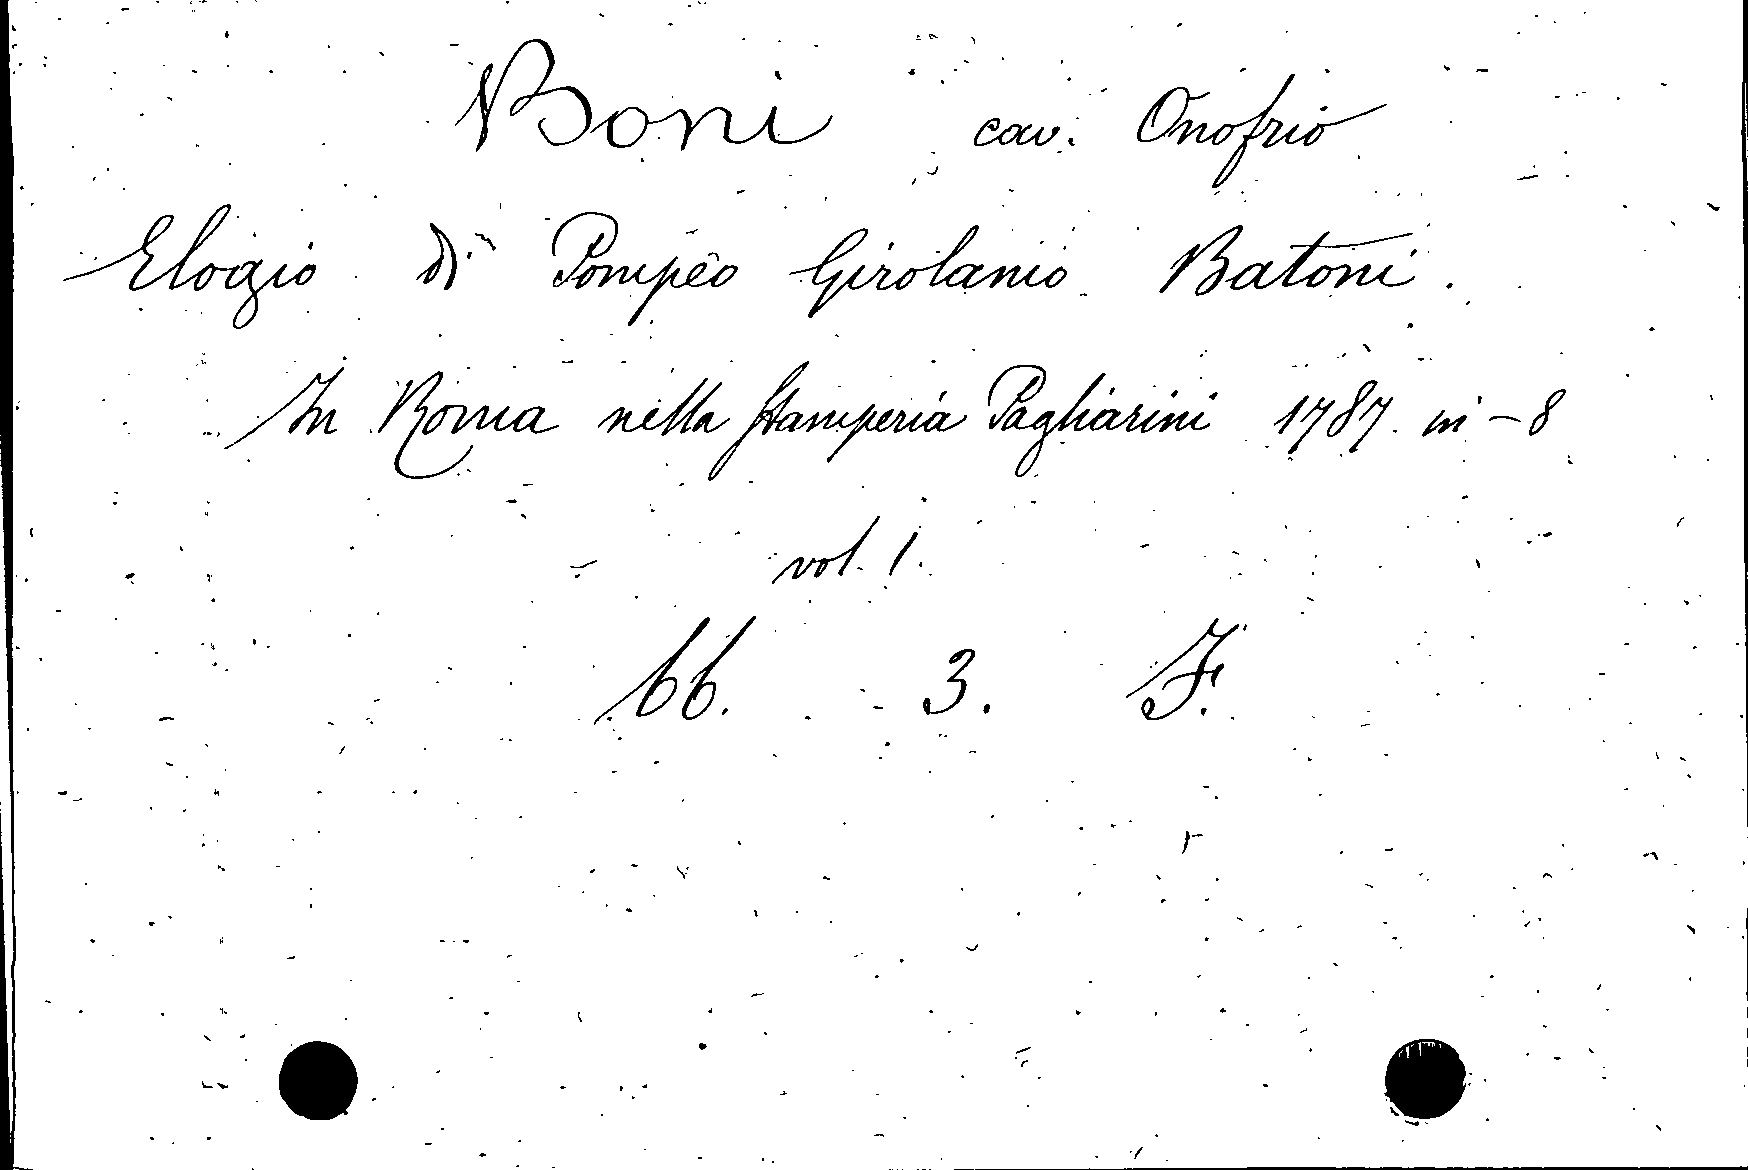 Boni cav. Onofrio
Elogio di Pompeo Girolamo Batoni.
In Roma nella Stamperia Pagliarini 1787. in - 8
vol. 1.
66. 3. F.